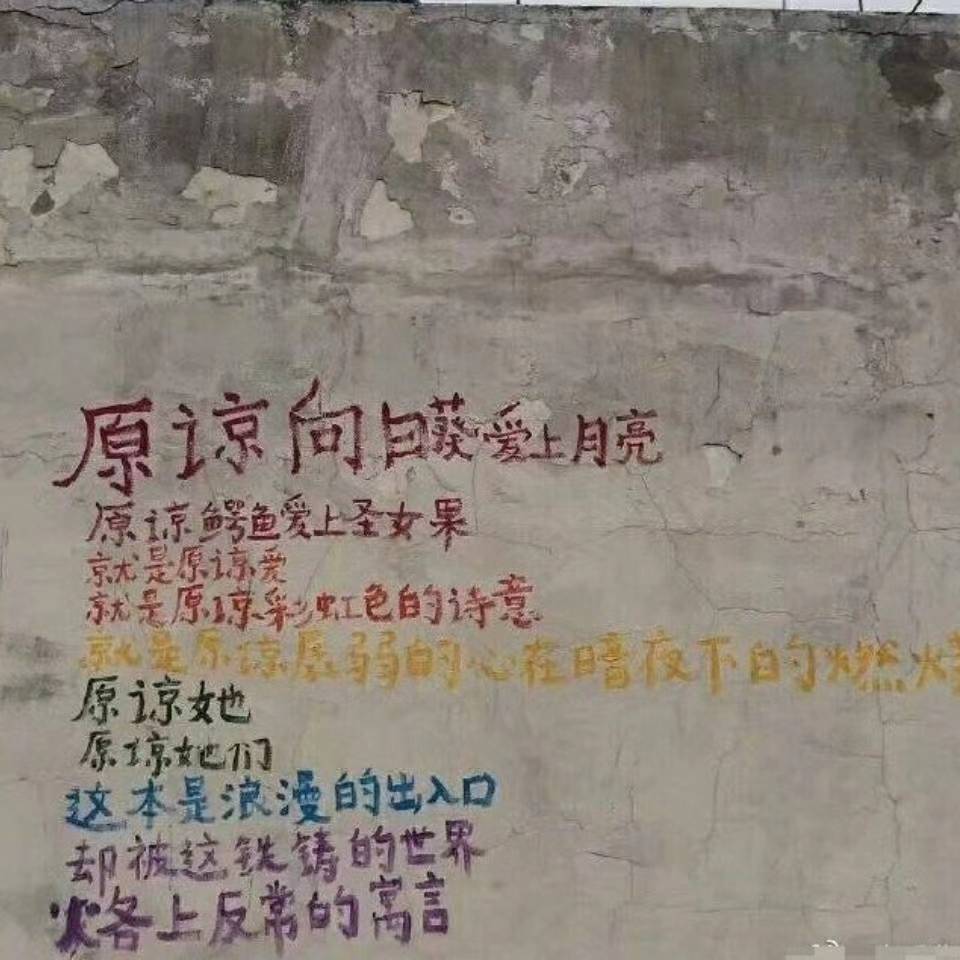 原谅向日葵爱上月亮
原谅鳄鱼爱上圣女果
就是原谅爱
就是原谅彩虹色的诗意
就是原谅孱弱的心在暗夜下的燃烧
原谅她
原谅她们
这本是浪漫的出入口
却被这铁铸的世界
火各上反常的寓言